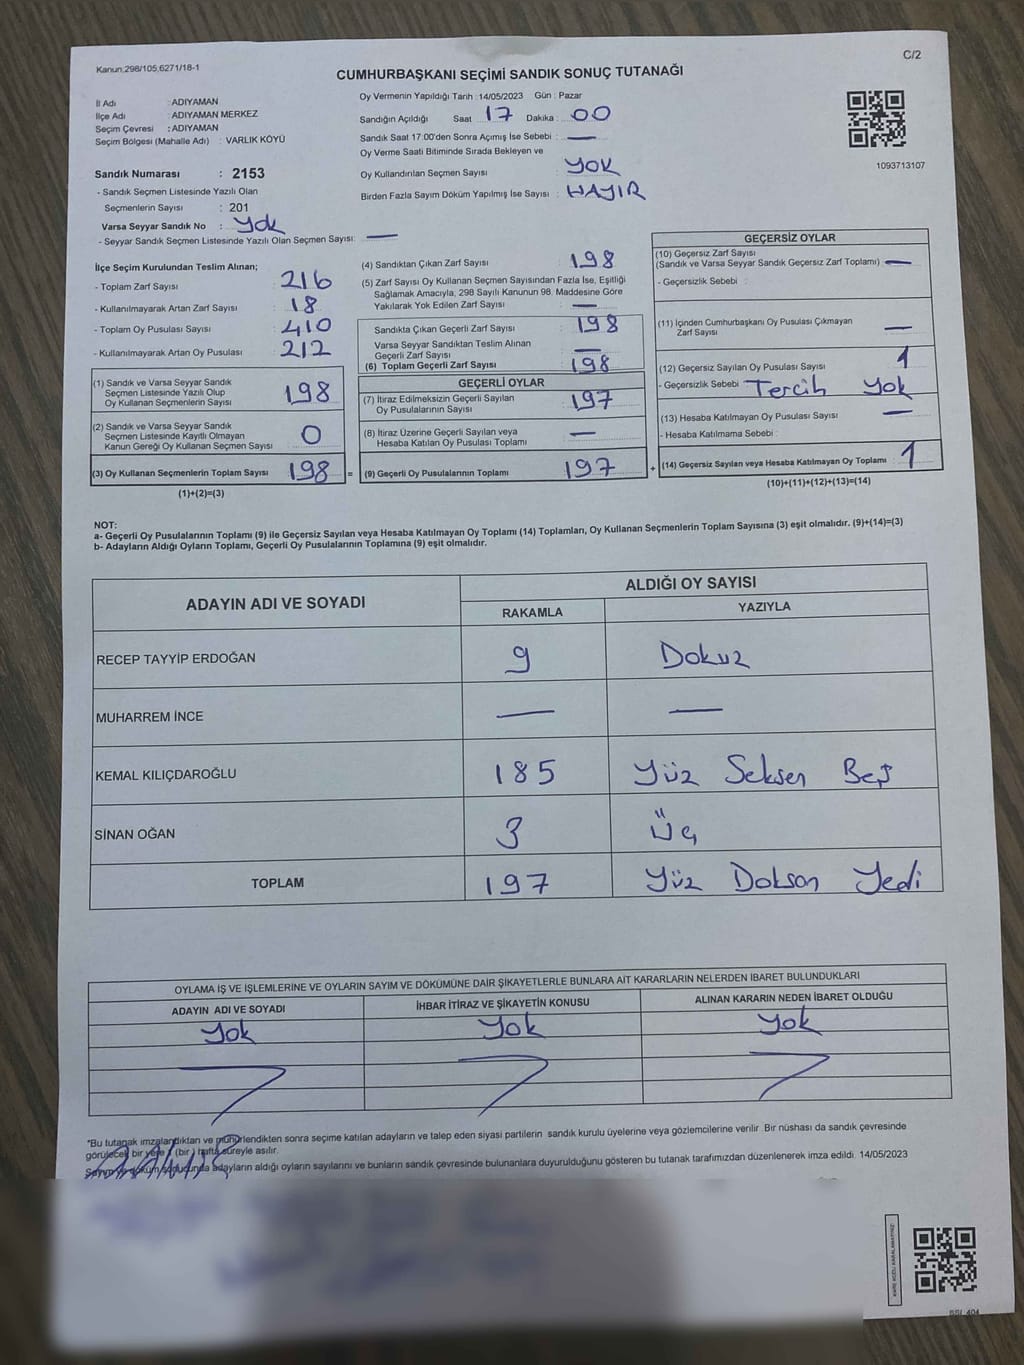 Kanun:298/105,6271/18-1
C/2
CUMHURBAŞKANI SEÇİMİ SANDIK SONUÇ TUTANAĞI
İl Adı : ADIYAMAN
İlçe Adı : ADIYAMAN MERKEZ
Seçim Çevresi : ADIYAMAN
Seçim Bölgesi (Mahalle Adı) : VARLIK KÖYÜ
Sandık Numarası : 2153
- Sandık Seçmen Listesinde Yazılı Olan
Seçmenlerin Sayısı : 201
Varsa Seyyar Sandık No : Yok
- Seyyar Sandık Seçmen Listesinde Yazılı Olan Seçmen Sayısı: —
Oy Vermenin Yapıldığı Tarih :14/05/2023 Gün : Pazar
Sandığın Açıldığı Saat : 17 Dakika : 00
Sandık Saat 17:00'den Sonra Açımış İse Sebebi : —
Oy Verme Saati Bitiminde Sırada Bekleyen ve
Oy Kullandırılan Seçmen Sayısı : YOK
Birden Fazla Sayım Döküm Yapılmış İse Sayısı : HAYIR
1093713107
İlçe Seçim Kurulundan Teslim Alınan;
- Toplam Zarf Sayısı : 216
- Kullanılmayarak Artan Zarf Sayısı : 18
- Toplam Oy Pusulası Sayısı : 410
- Kullanılmayarak Artan Oy Pusulası : 212
(1) Sandık ve Varsa Seyyar Sandık
Seçmen Listesinde Yazılı Olup
Oy Kullanan Seçmenlerin Sayısı 198
(2) Sandık ve Varsa Seyyar Sandık
Seçmen Listesinde Kayıtlı Olmayan
Kanun Gereği Oy Kullanan Seçmen Sayısı 0
(3) Oy Kullanan Seçmenlerin Toplam Sayısı 198 =
(1)+(2)=(3)
(4) Sandıktan Çıkan Zarf Sayısı : 198
(5) Zarf Sayısı Oy Kullanan Seçmen Sayısından Fazla İse, Eşitliği
Sağlamak Amacıyla, 298 Sayılı Kanunun 98. Maddesine Göre
Yakılarak Yok Edilen Zarf Sayısı : —
Sandıkta Çıkan Geçerli Zarf Sayısı : 198
Varsa Seyyar Sandıktan Teslim Alınan
Geçerli Zarf Sayısı : —
(6) Toplam Geçerli Zarf Sayısı : 198
GEÇERLİ OYLAR
(7) İtiraz Edilmeksizin Geçerli Sayılan
Oy Pusulalarının Sayısı : 197
(8) İtiraz Üzerine Geçerli Sayılan veya
Hesaba Katılan Oy Pusulası Toplamı : —
(9) Geçerli Oy Pusulalarının Toplamı : 197 +
GEÇERSİZ OYLAR
(10) Geçersiz Zarf Sayısı
(Sandık ve Varsa Seyyar Sandık Geçersiz Zarf Toplamı) : —
- Geçersizlik Sebebi :
(11) İçinden Cumhurbaşkanı Oy Pusulası Çıkmayan
Zarf Sayısı : —
(12) Geçersiz Sayılan Oy Pusulası Sayısı : 1
- Geçersizlik Sebebi : Tercih Yok
(13) Hesaba Katılmayan Oy Pusulası Sayısı : —
- Hesaba Katılmama Sebebi :
(14) Geçersiz Sayılan veya Hesaba Katılmayan Oy Toplamı : 1
(10)+(11)+(12)+(13)=(14)
NOT:
a- Geçerli Oy Pusulalarının Toplamı (9) ile Geçersiz Sayılan veya Hesaba Katılmayan Oy Toplamı (14) Toplamları, Oy Kullanan Seçmenlerin Toplam Sayısına (3) eşit olmalıdır. (9)+(14)=(3)
b- Adayların Aldığı Oyların Toplamı, Geçerli Oy Pusulalarının Toplamına (9) eşit olmalıdır.
ADAYIN ADI VE SOYADI
ALDIĞI OY SAYISI
RAKAMLA YAZIYLA
RECEP TAYYİP ERDOĞAN 9 Dokuz
MUHARREM İNCE — —
KEMAL KILIÇDAROĞLU 185 Yüz Seksen Beş
SİNAN OĞAN 3 Üç
TOPLAM 197 Yüz Doksan Yedi
OYLAMA İŞ VE İŞLEMLERİNE VE OYLARIN SAYIM VE DÖKÜMÜNE DAİR ŞİKAYETLERLE BUNLARA AİT KARARLARIN NELERDEN İBARET BULUNDUKLARI
ADAYIN ADI VE SOYADI İHBAR İTİRAZ VE ŞİKAYETİN KONUSU ALINAN KARARIN NEDEN İBARET OLDUĞU
Yok Yok Yok
*Bu tutanak imzalandıktan ve mühürlendikten sonra seçime katılan adayların ve talep eden siyasi partilerin sandık kurulu üyelerine veya gözlemcilerine verilir. Bir nüshası da sandık çevresinde
görülecek bir yere 1 (bir) hafta süreyle asılır.
Sayım ve döküm sonucunda adayların aldığı oyların sayılarını ve bunların sandık çevresinde bulunanlara duyurulduğunu gösteren bu tutanak tarafımızdan düzenlenerek imza edildi. 14/05/2023